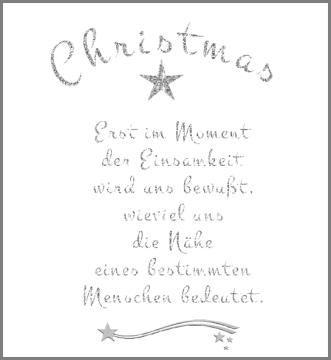 Christmas
Erst im Moment
der Einsamkeit
wird uns bewußt,
wieviel uns
die Nähe
eines bestimmten
Menschen bedeutet.